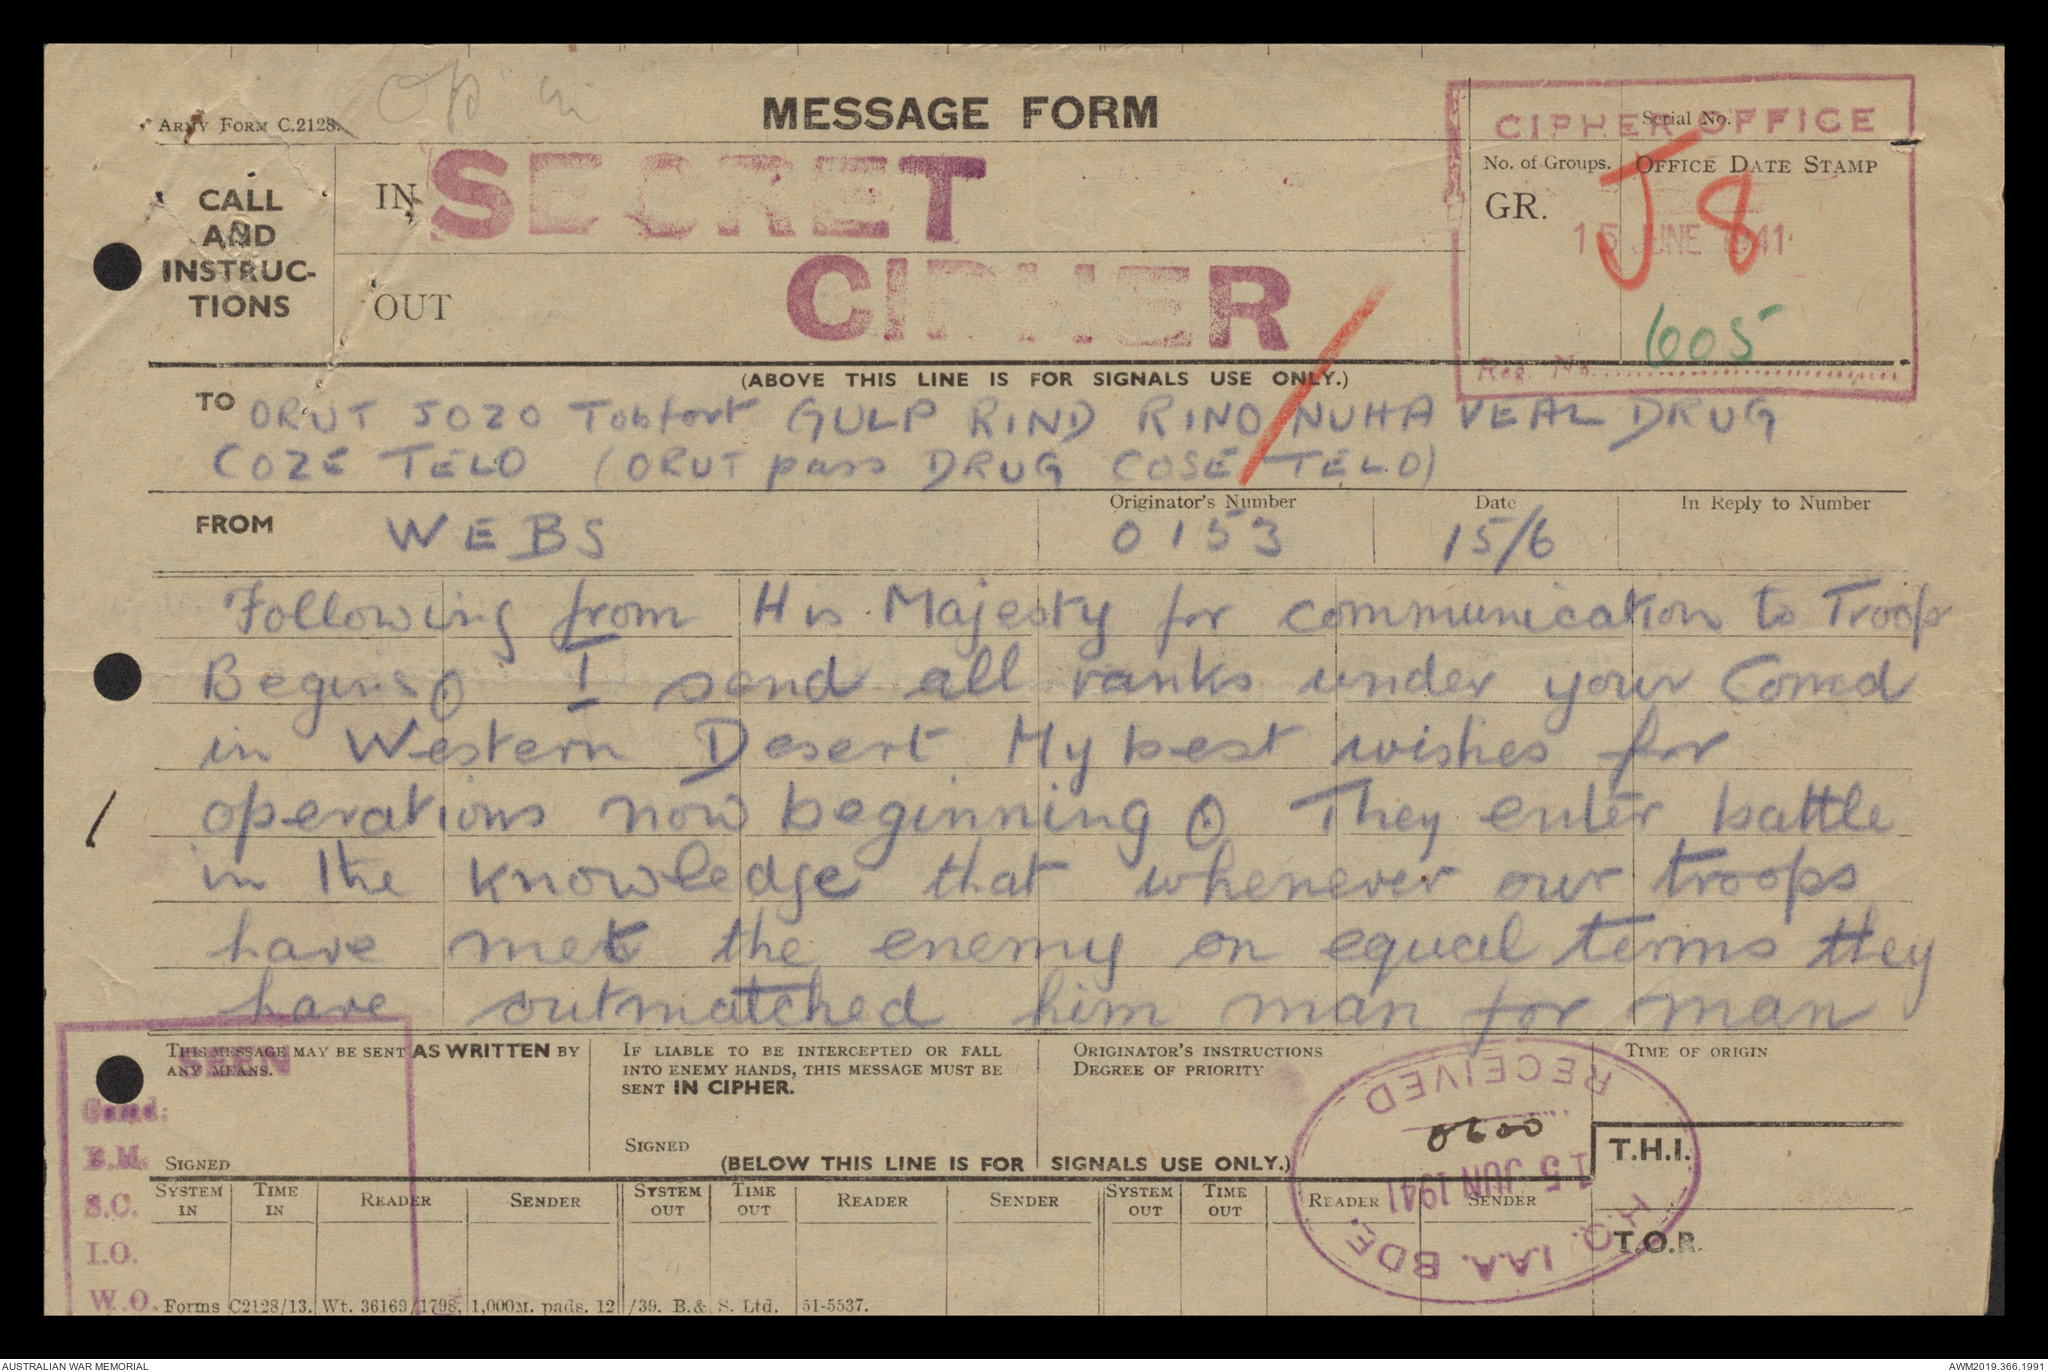 Op
MESSAGE FORM
Army Form C.2128.
Serial No.
CIPHER OFFICE
CALL
AND
INSTRUC-
TIONS
IN SECRET
No. of Groups. Office Date Stamp
GR. J8
15 JUNE 1941
OUT CIPHER
605
Reg. No.
(ABOVE THIS LINE IS FOR SIGNALS USE ONLY.)
TO ORUT JOZO Tobfort GULP RIND RINO / NUHA VEAL DRUG
COZE TELO (ORUT pass DRUG COSE TELO)
FROM WEBS Originator's Number 0153 Date 15/6 In Reply to Number
Following from His Majesty for communication to Troops
Begins () I send all ranks under your Comd
in Western Desert My best wishes for
operations now beginning () They enter battle
in the knowledge that whenever our troops
have met the enemy on equal terms they
have outmatched him man for man
This message may be sent AS WRITTEN by
any means.
Signed
If liable to be intercepted or fall
into enemy hands, this message must be
sent IN CIPHER.
Signed
Originator's Instructions
Degree of Priority
0600
Time of Origin
T.H.I.
T.O.R.
(BELOW THIS LINE IS FOR SIGNALS USE ONLY.)
System In Time In Reader Sender System Out Time Out Reader Sender System Out Time Out Reader Sender
SEEN
Comd:
B.M.
S.C.
I.O.
W.O.
RECEIVED
15 JUN 1941
H.Q. 1.A.A. BDE.
Forms C2128/13. Wt. 36169/1798. 1,000M. pads. 12/39. B.& S. Ltd. 51-5537.
AUSTRALIAN WAR MEMORIAL
AWM2019.366.1991